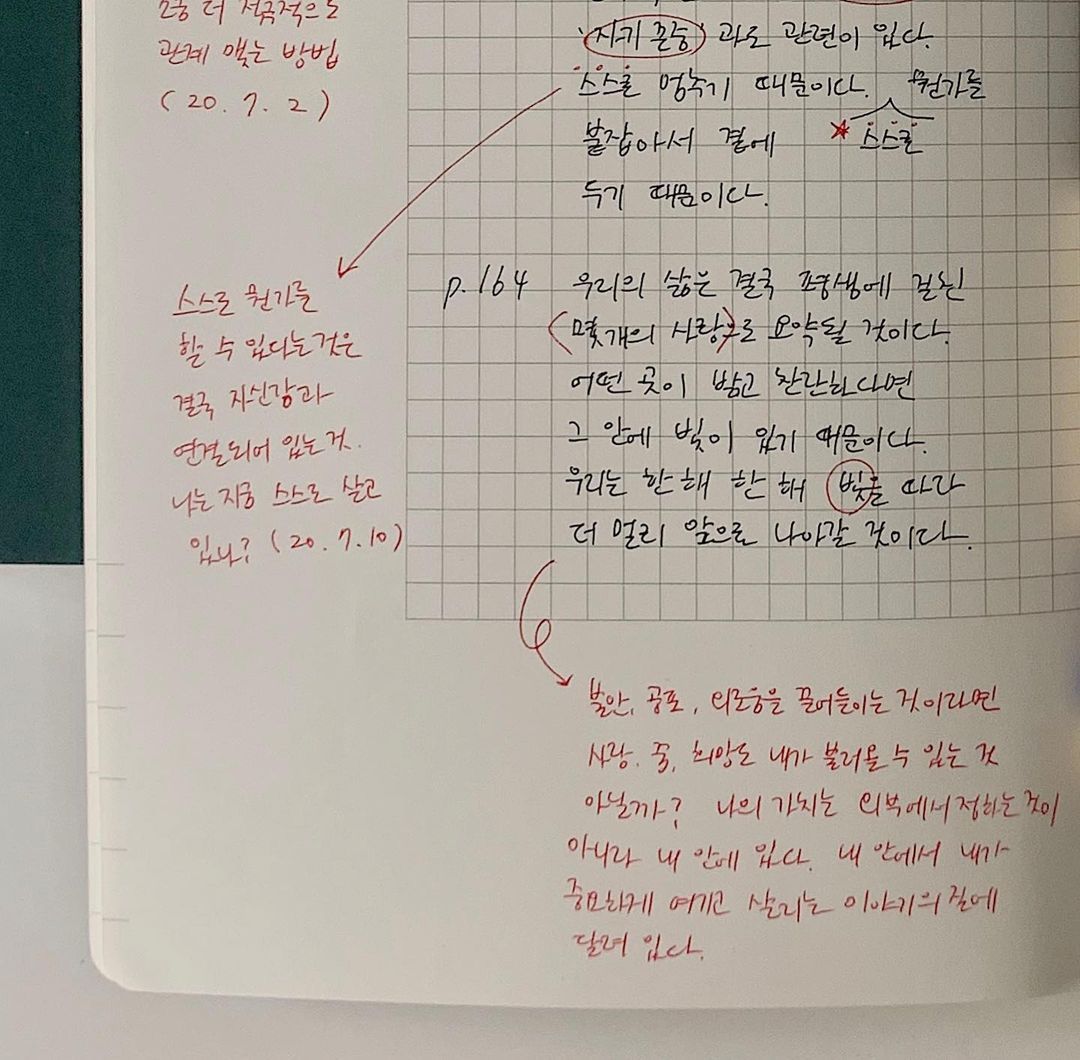 더 적극적으로
관계 맺는 방법
(20.7.2)
'자기 존중' 과도 관련이 있다.
스스로 멈추기 때문이다. 뭔가를
붙잡아서 곁에 * 스스로
두기 때문이다.
스스로 뭔가를
할 수 있다는 것은
결국 자신감과
연결되어 있는 것.
나는 지금 스스로 살고
있나? (20.7.10)
p.164 우리의 삶은 결국 평생에 걸친
(몇 개의 사랑)으로 요약될 것이다.
어떤 곳이 밝고 찬란하다면
그 안에 빛이 있기 때문이다.
우리는 한 해 한 해 빛을 따라
더 멀리 앞으로 나아갈 것이다.
불안, 공포, 외로움을 끌어들이는 것이라면
사랑, 꿈, 희망도 내가 불러올 수 있는 것
아닐까? 나의 가치는 외부에서 정하는 것이
아니라 내 안에 있다. 내 안에서 내가
중요하게 여기고 살리는 이야기의 질에
달려 있다.